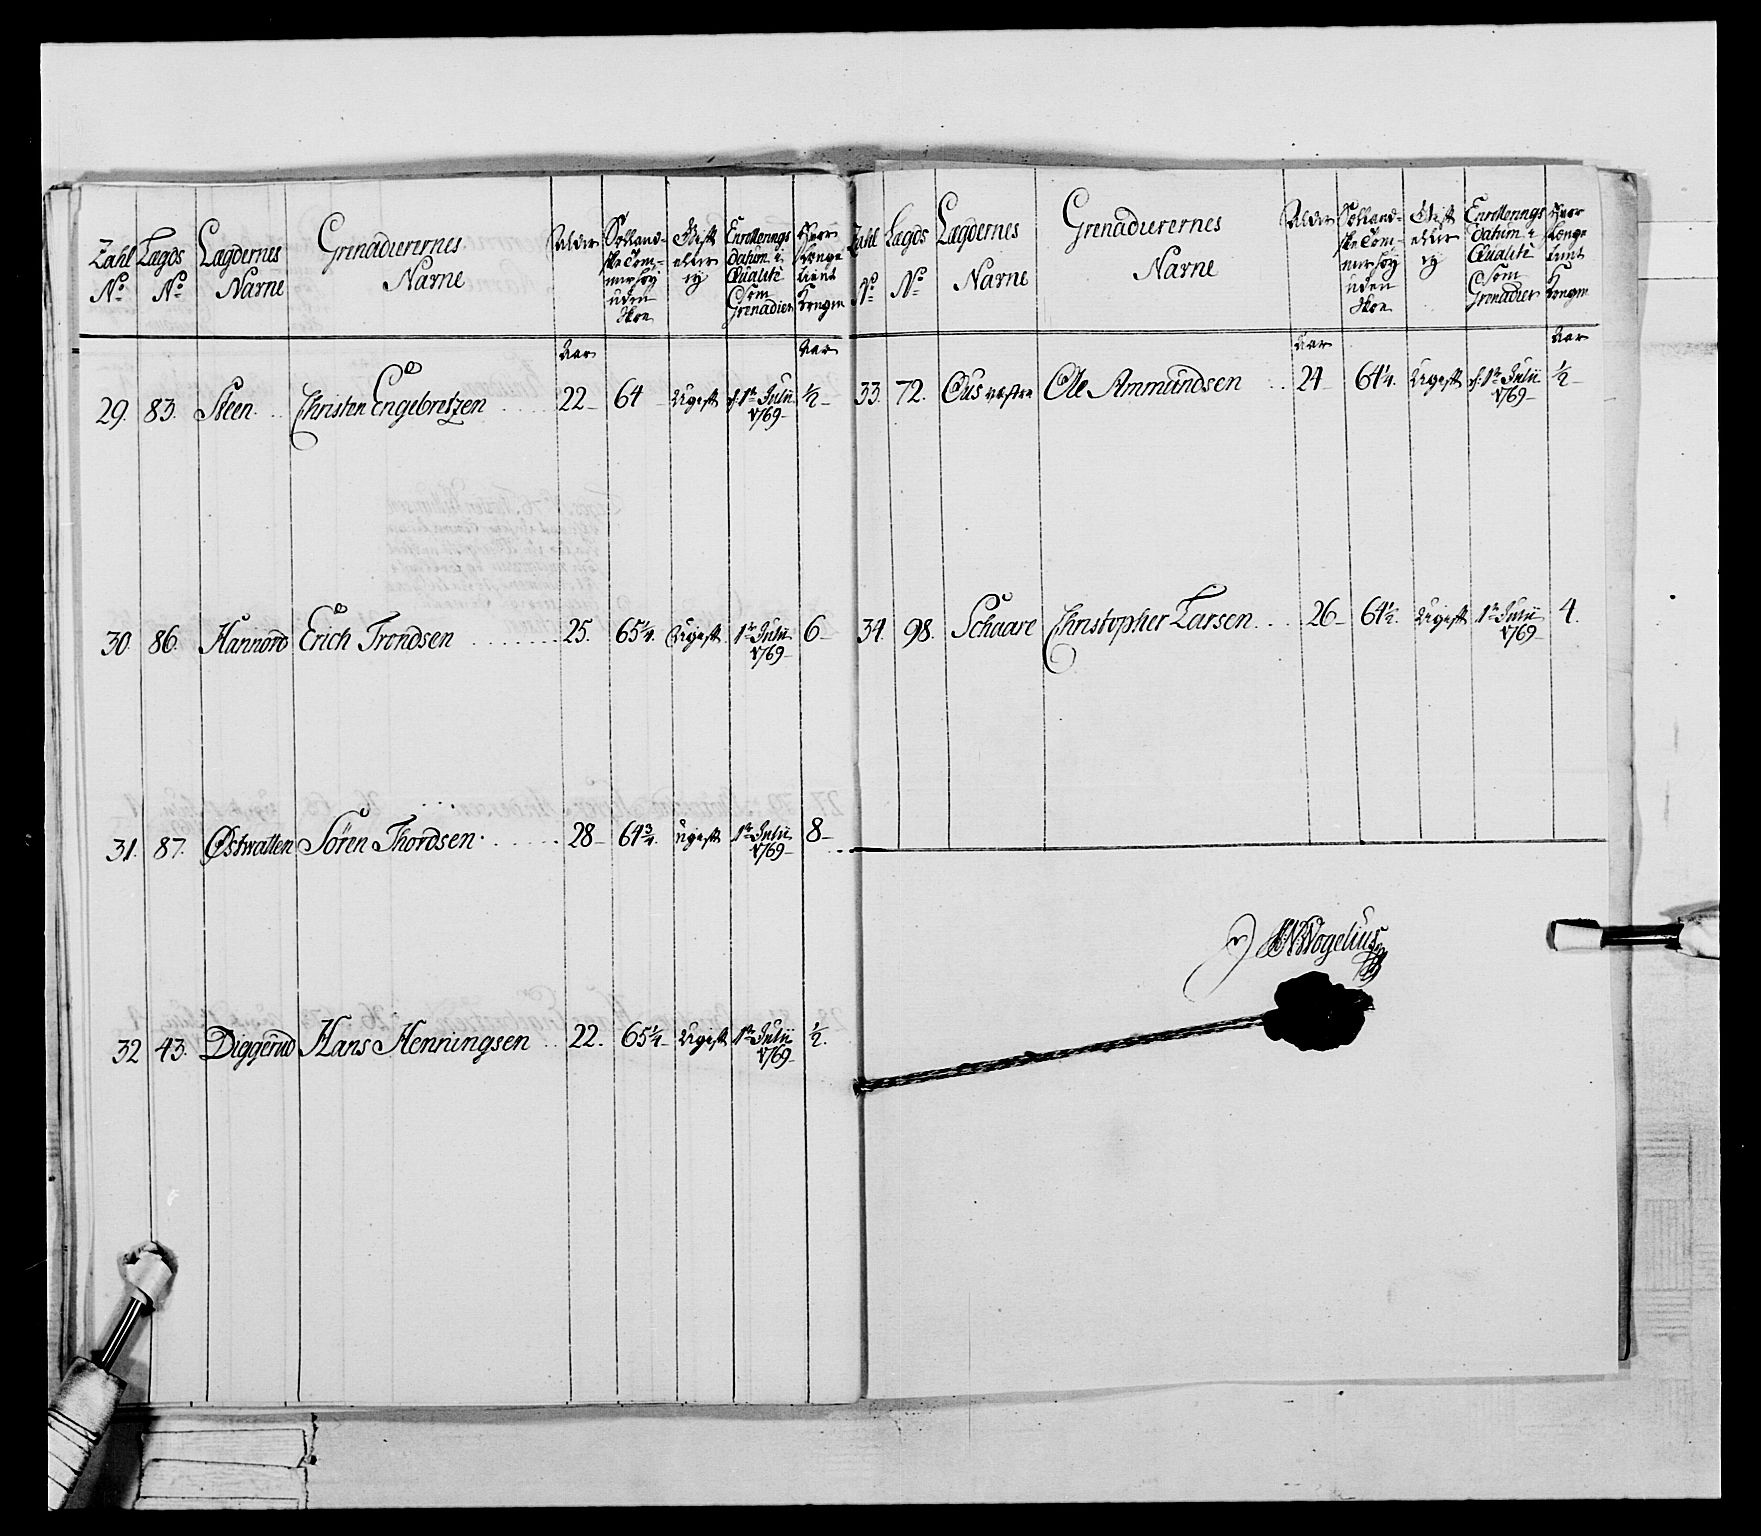 Zahl No. Lægds No. Lægdernes Navne Grenadierernes Navne Alder Hollandske Tommer høy uden Skoe Gift eller ey Enrollerings datum i Qualité som Grenadier Hvor længe tient Kongen
Aar Aar
29. 83. Steen Christen Engebretzen 22 64 Ugift d. 1te Julii 1769 ½
30 86. Hannord Erich Trondsen 25. 65¼ Ugift 1te Julii 1769 6
31. 87. Østwatten Sören Thordsen 28 64¾ ugift 1te Julii 1769 8
32 43. Diggerud Hans Henningsen 22. 65¼ Ugift 1te Julii 1769 ½
Zahl No. Lægds No. Lægdernes Navne Grenadierernes Navne Alder Hollandske Tommer høy uden Skoe Gift eller ey Enrollerings datum i Qualité som Grenadier Hvor længe tient Kongen
Aar Aar
33. 72. Ous væstre Ole Ammundsen 24 64¼ Ugift d. 1te Julii 1769 ½
34. 98. Schaare Christopher Larsen 26 64½ Ugift 1te Julii 1769 4.
Wogelius